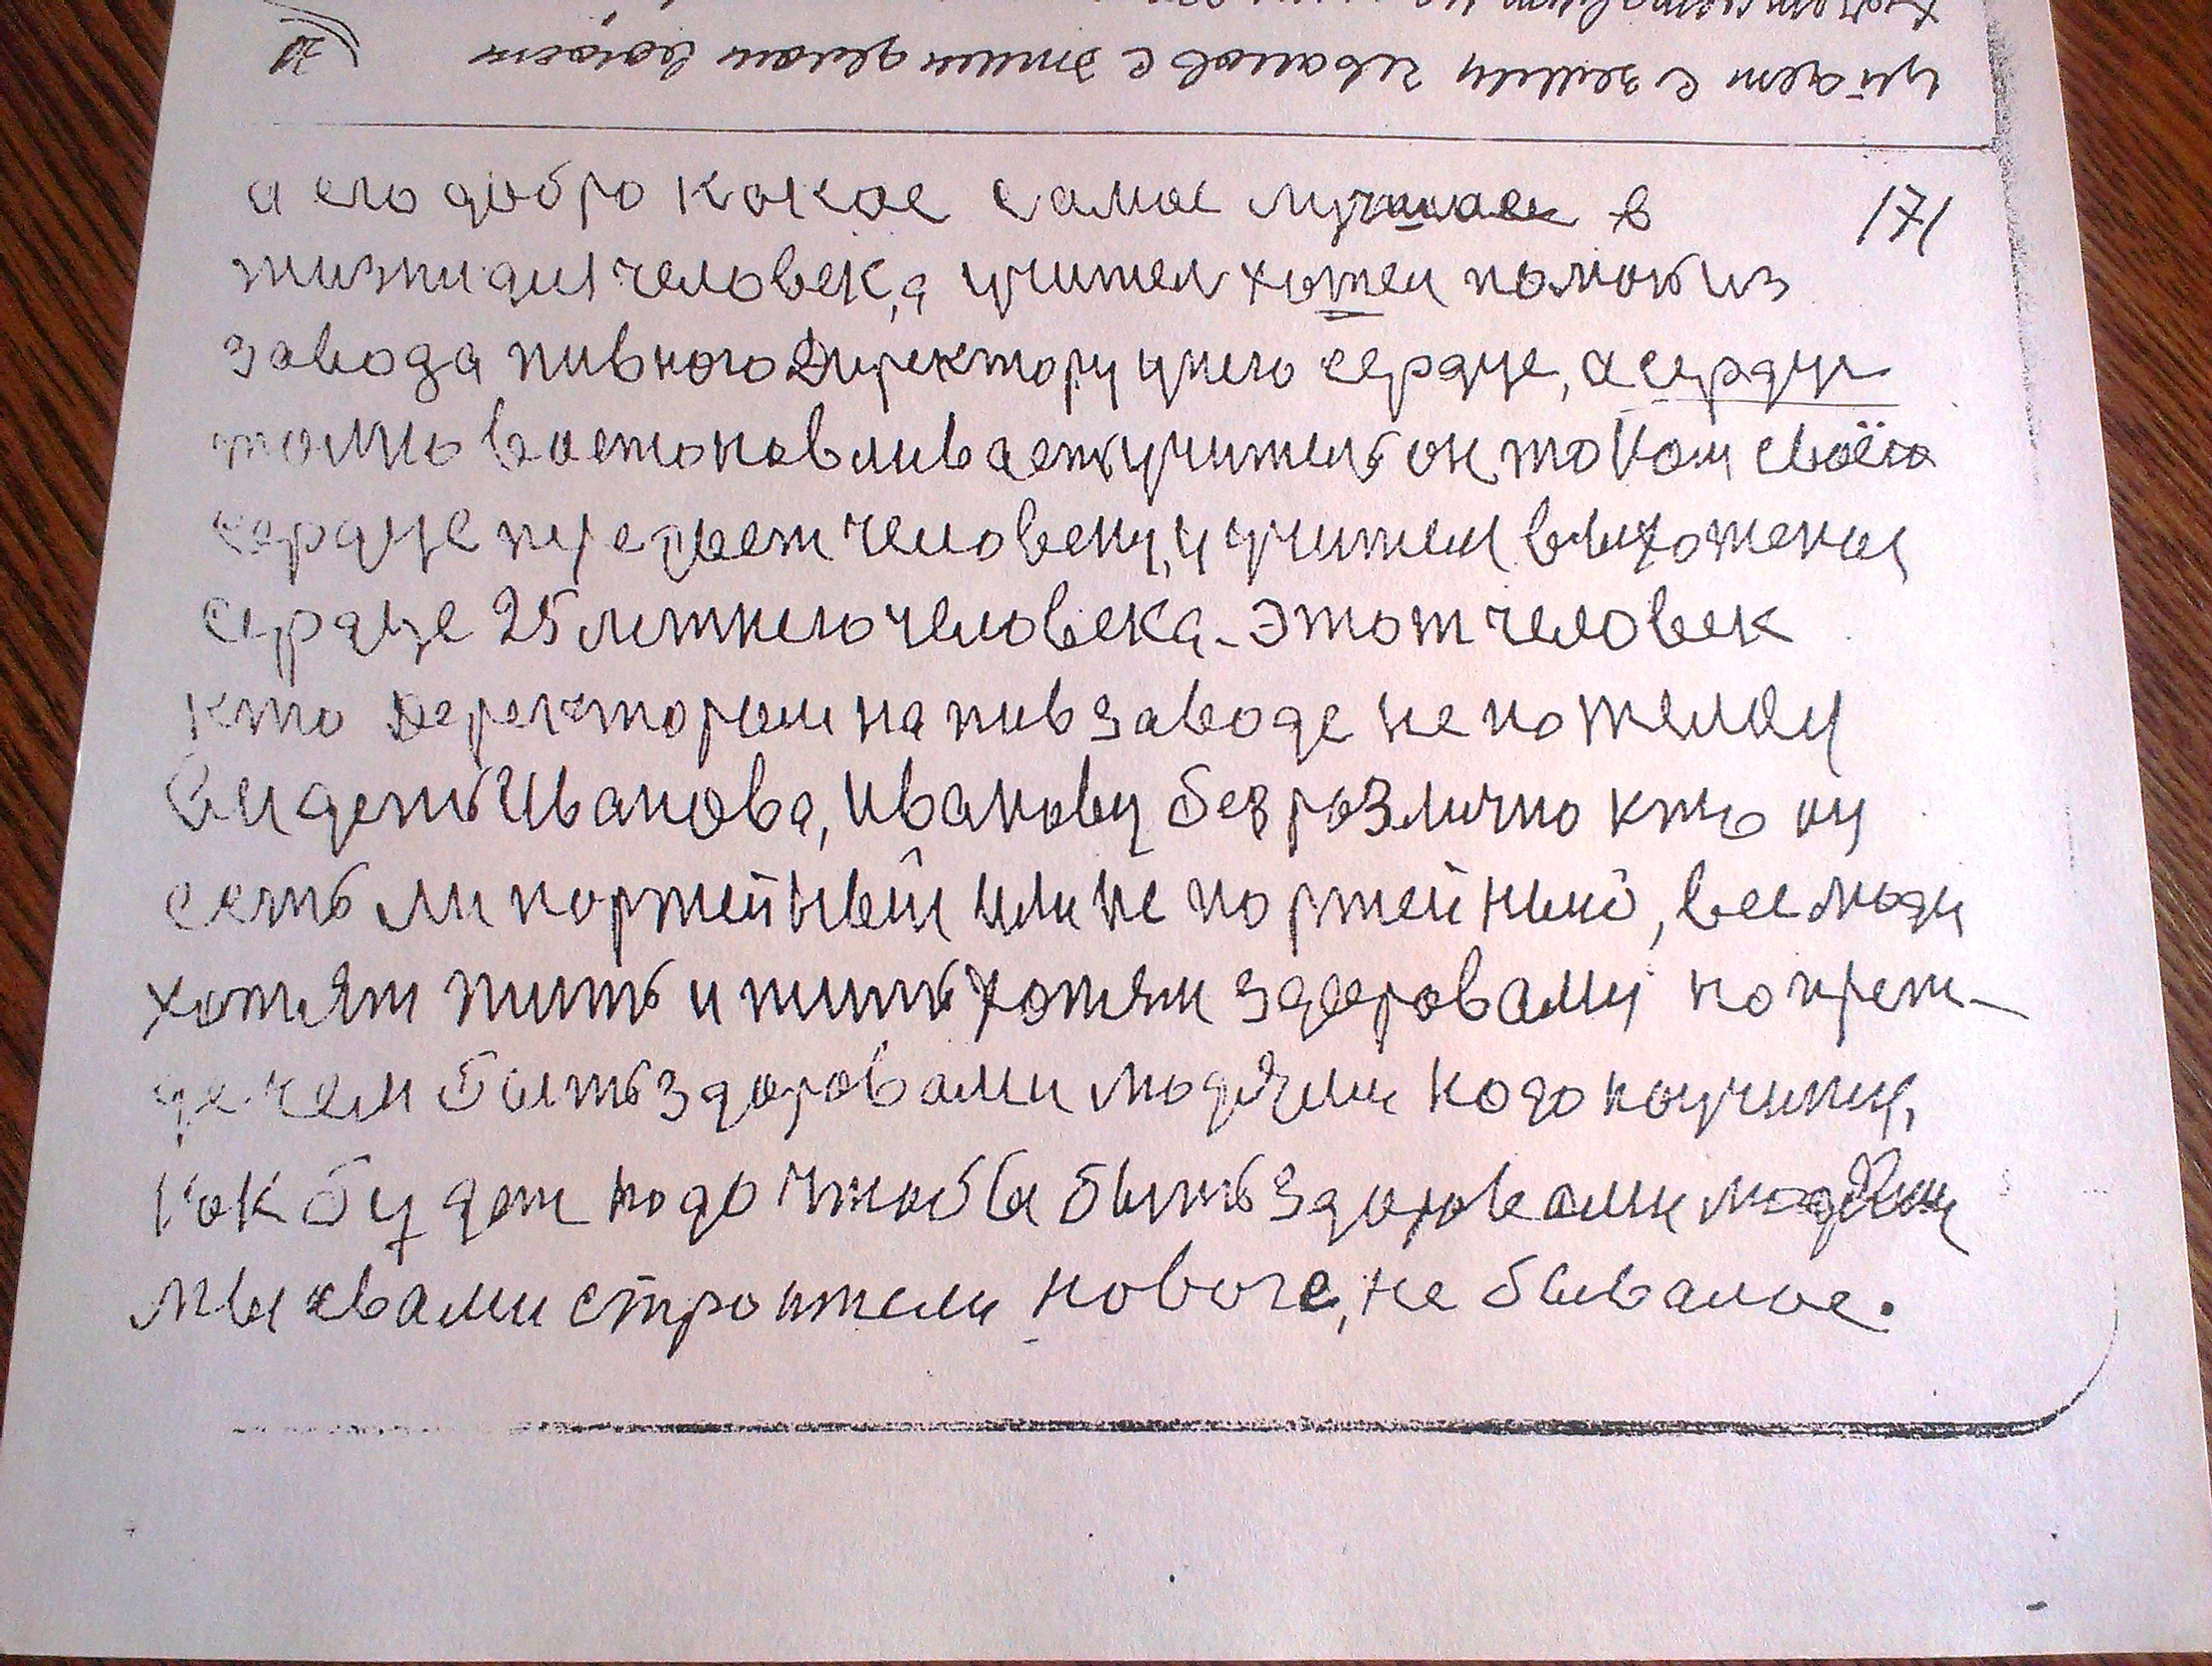 171
а его добро кокое самое лучшаее в
жизни для человек, а учител хотел помоч из
завода пивного Директору у него сердце, а сердце
толко восстонавливает учитель он током своего
сердце передает человеку, у учителя
сердце 25 летнего человека. Этот человек
кто деректором на пивзаводе не пожелал
видеть Иванова, Иванову безразлично кто он
есть ли портейный или не портейный, все люди
хотят жить и жить хотят здоровами, но преж-
де чем быть здоровами людями надо научится,
как будет надо чтобы быть здоровами людями
мы свами строители новоге, не бывалое.